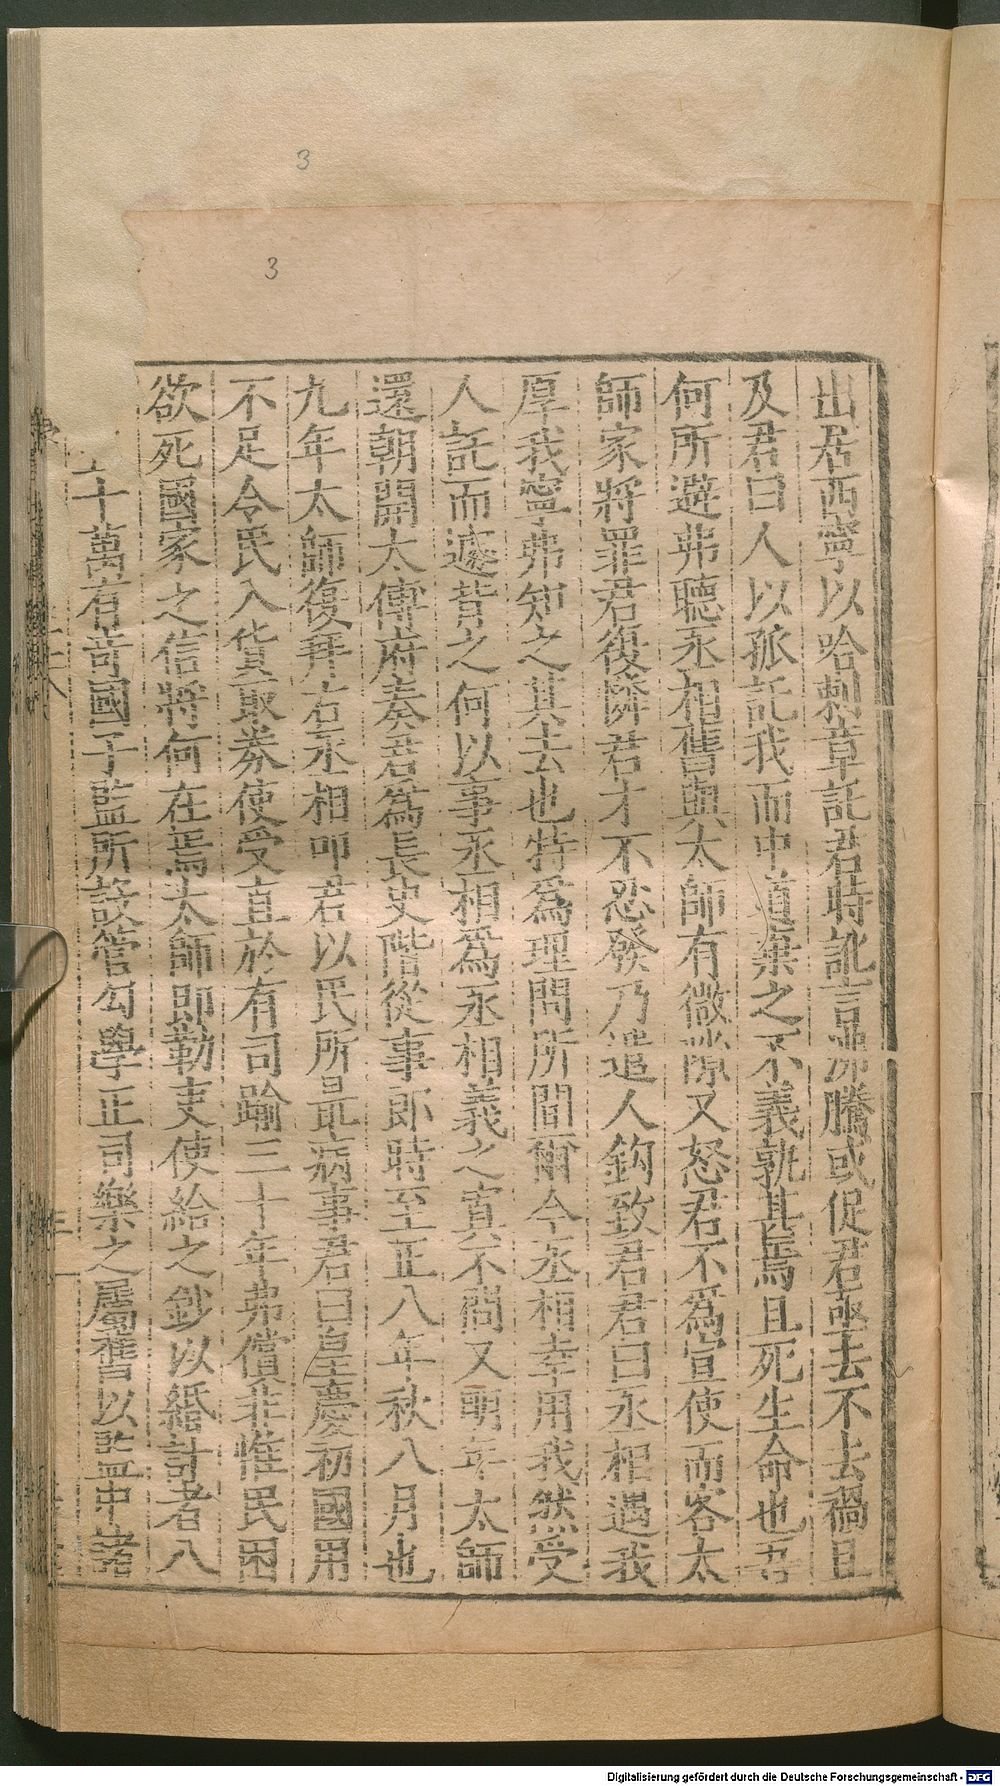 3
3
出居西寧以哈剌章託君時訛言沸騰或促君亟去不去禍且
及君曰人以孤託我而中道棄之不義孰甚焉且死生命也吾
何所避弗聽丞相舊與太師有微隙又怒君不為宣使而客太
師家將罪君復隣君才不忍發乃遣人鈎致君君曰丞相遇我
厚我寧弗知之其去也特為理問所間爾今丞相幸用我然受
人託而遽背之何以事丞相為丞相義之寘不問又明年太師
還朝開太傅府奏君為長史階從事郎時至正八年秋八月也
九年太師復拜右丞相叩君以民所最病事君曰皇慶初國用
不足令民入貨取券使受直於有司踰三十年弗償非惟民困
欲死國家之信將何在焉太師即勒吏使給之鈔以緡計者八
十萬有奇國子監所設管勾學正司樂之屬舊以監中諸
Digitalisierung gefördert durch die Deutsche Forschungsgemeinschaft - DFG